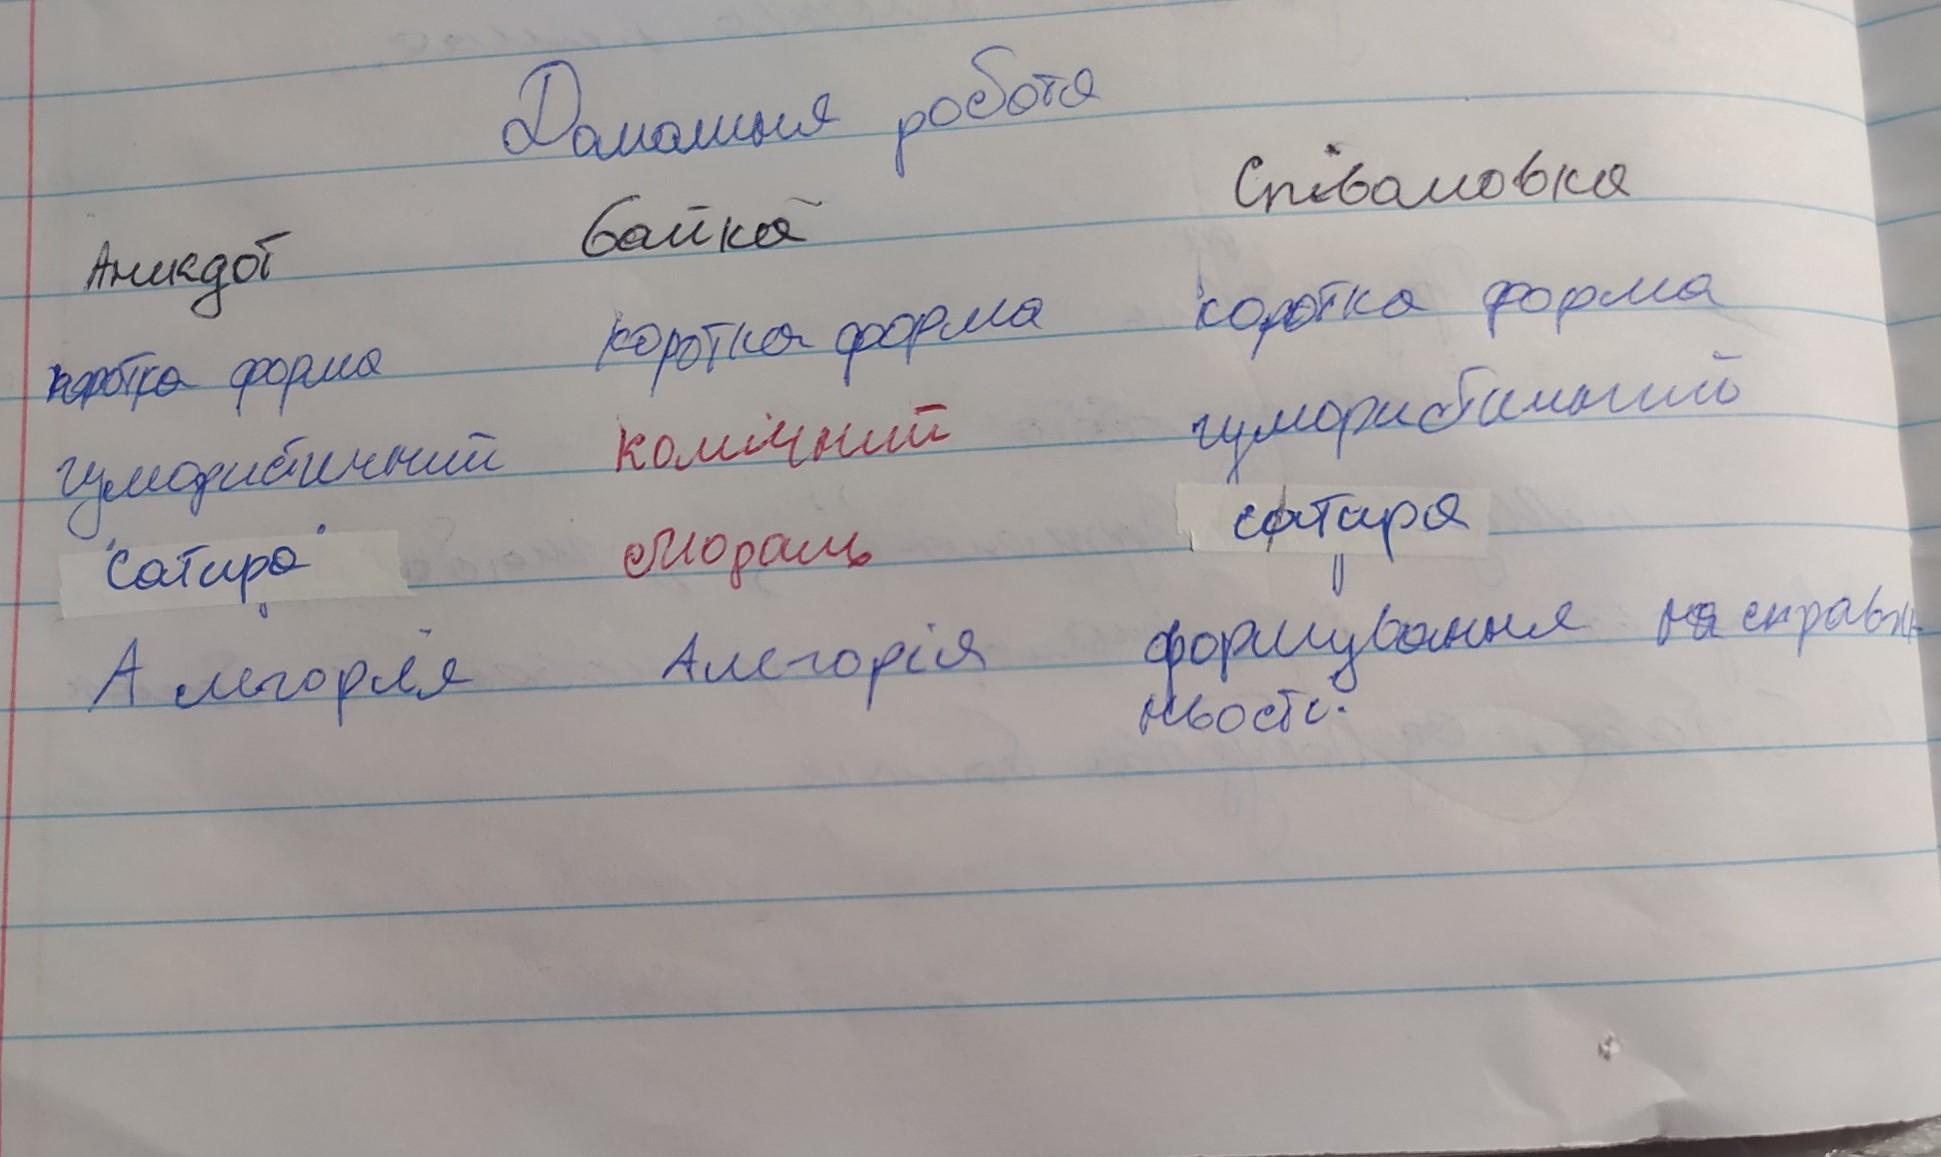 Домашня робота
Анекдот байка Співамовка
коротка форма коротка форма коротка форма
гумористичний комічний гумористичний
"сатира" мораль сатира
Алегорія Алегорія формування на справж
ньость.